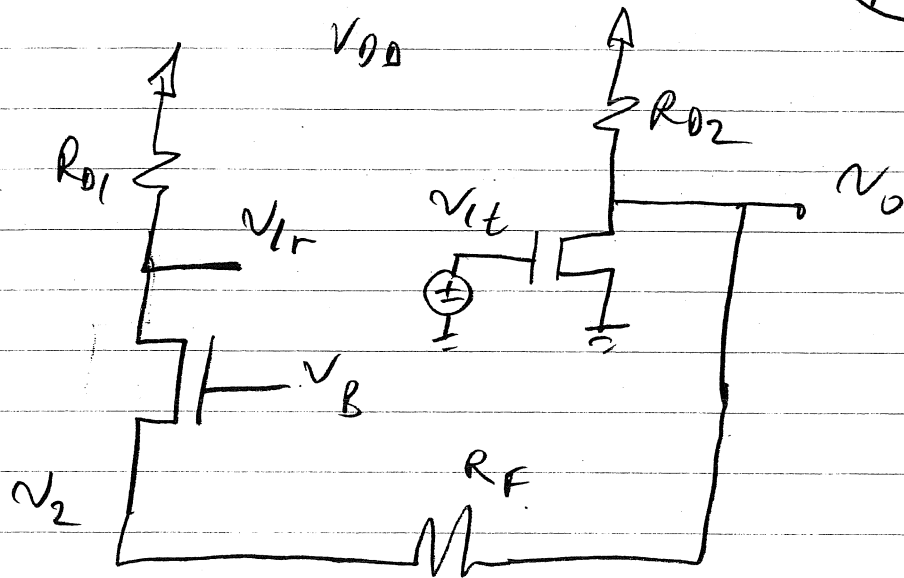 V_DD
R_D2
R_D1
v_o
v_1r
v_1t
V_B
R_F
v_2